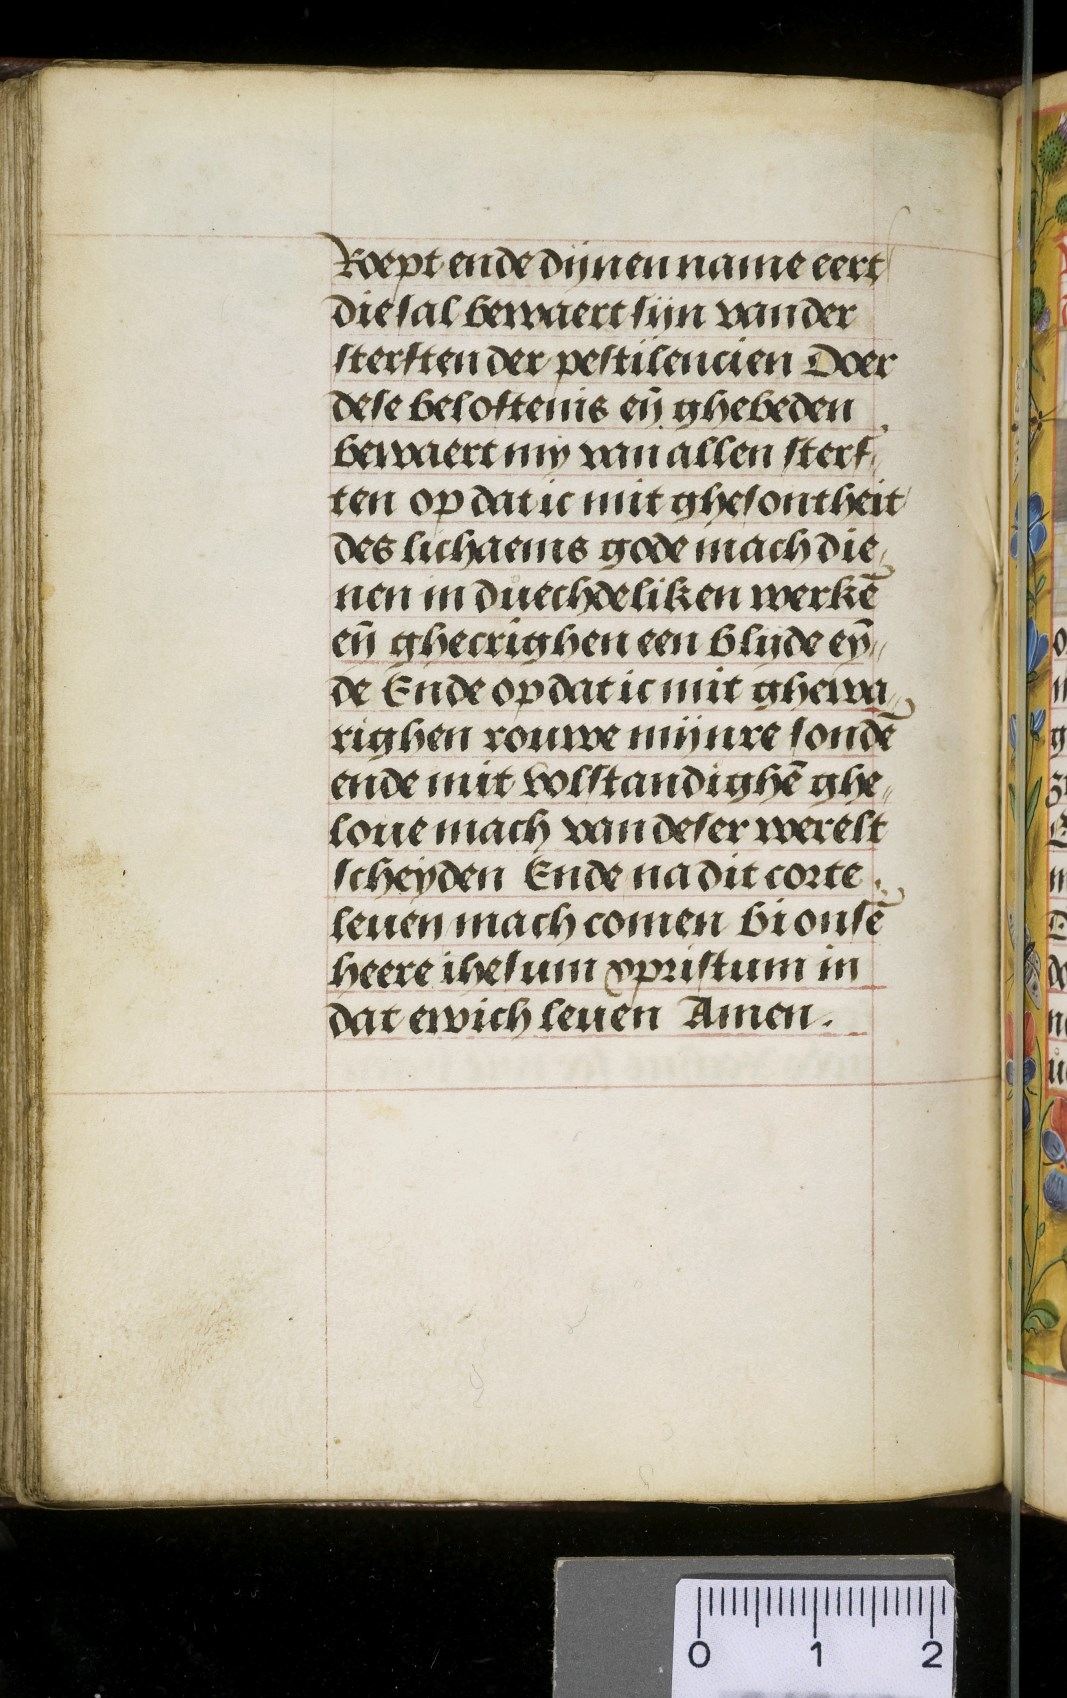 Roept ende dijnen name eert
die sal bewaert sijn vander
sterften der pestilencien Doer
dese beloftenis eñ ghebeden
bewaert my van allen sterf„
ten op dat ic mit ghesontheit
des lichaems gode mach die„
nen in duechdeliken werkē
eñ ghecrighen een blijde eỹ„
de Ende op dat ic mit ghewa„
righen rouwe mijnre sondē
ende mit volstandighē ghe„
loue mach van deser werelt
scheyden Ende na dit corte
leuen mach comen bi onsē
heere ihesum xpristum in
dat ewich leuen Amen.
0 1 2